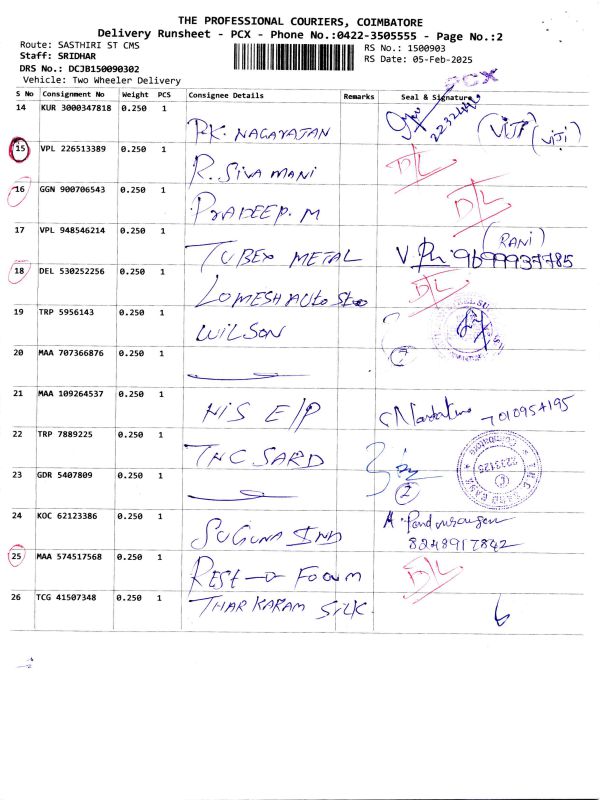 THE PROFESSIONAL COURIERS, COIMBATORE
Delivery Runsheet - PCX - Phone No.:0422-3505555 - Page No.:2
Route: SASTHIRI ST CMS RS No.: 1500903
Staff: SRIDHAR RS Date: 05-Feb-2025
DRS No.: DCJB150090302
Vehicle: Two Wheeler Delivery
PCX
S No Consignment No Weight PCS Consignee Details Remarks Seal & Signature
14 KUR 3000347818 0.250 1 P.K. NAGARAJAN (VIJI) (VIJI)
15 VPL 226513389 0.250 1 R. SIVA MANI D/L
16 GGN 900706543 0.250 1 PRADEEP. M D/L
17 VPL 948546214 0.250 1 TUBEX METAL (RANI) V. Ph: 9699937785
18 DEL 530252256 0.250 1 LOMESH AUTO D/L
19 TRP 5956143 0.250 1 WILSON
20 MAA 707366876 0.250 1
21 MAA 109264537 0.250 1 HIS E/P 7010954195
22 TRP 7889225 0.250 1 TNC SARD
23 GDR 5407809 0.250 1 2
24 KOC 62123386 0.250 1 SUGUNA IND 8248917842
25 MAA 574517568 0.250 1 REST FOOUM D/L
26 TCG 41507348 0.250 1 THAR KARAM SILK